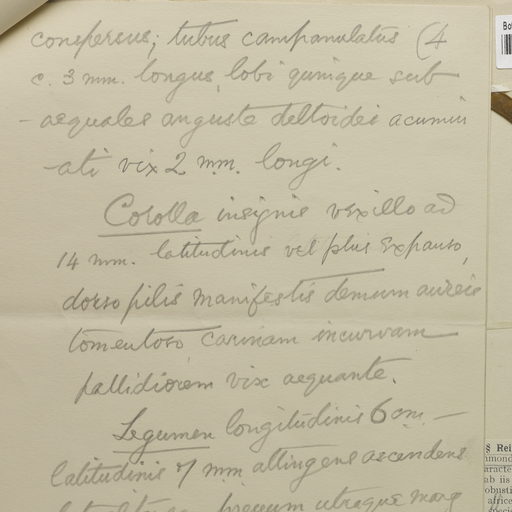 conspersus; tubus campanulatus (4
c. 3 mm. longus, lobi quinque sub
-aequales anguste deltoidei acumin
-ati vix 2 mm. longi.
Corolla insignis vexillo ad
14 mm. latitudinis vel plus expanso,
dorso pilis manifestis demum aureis
tomentoso carinam incurvam
pallidiorem vix aequante.
Legumen longitudinis 6 cm. —
latitudinis 7 mm attingens ascendens
utraque marg
Bot
§ Rei
ab iis